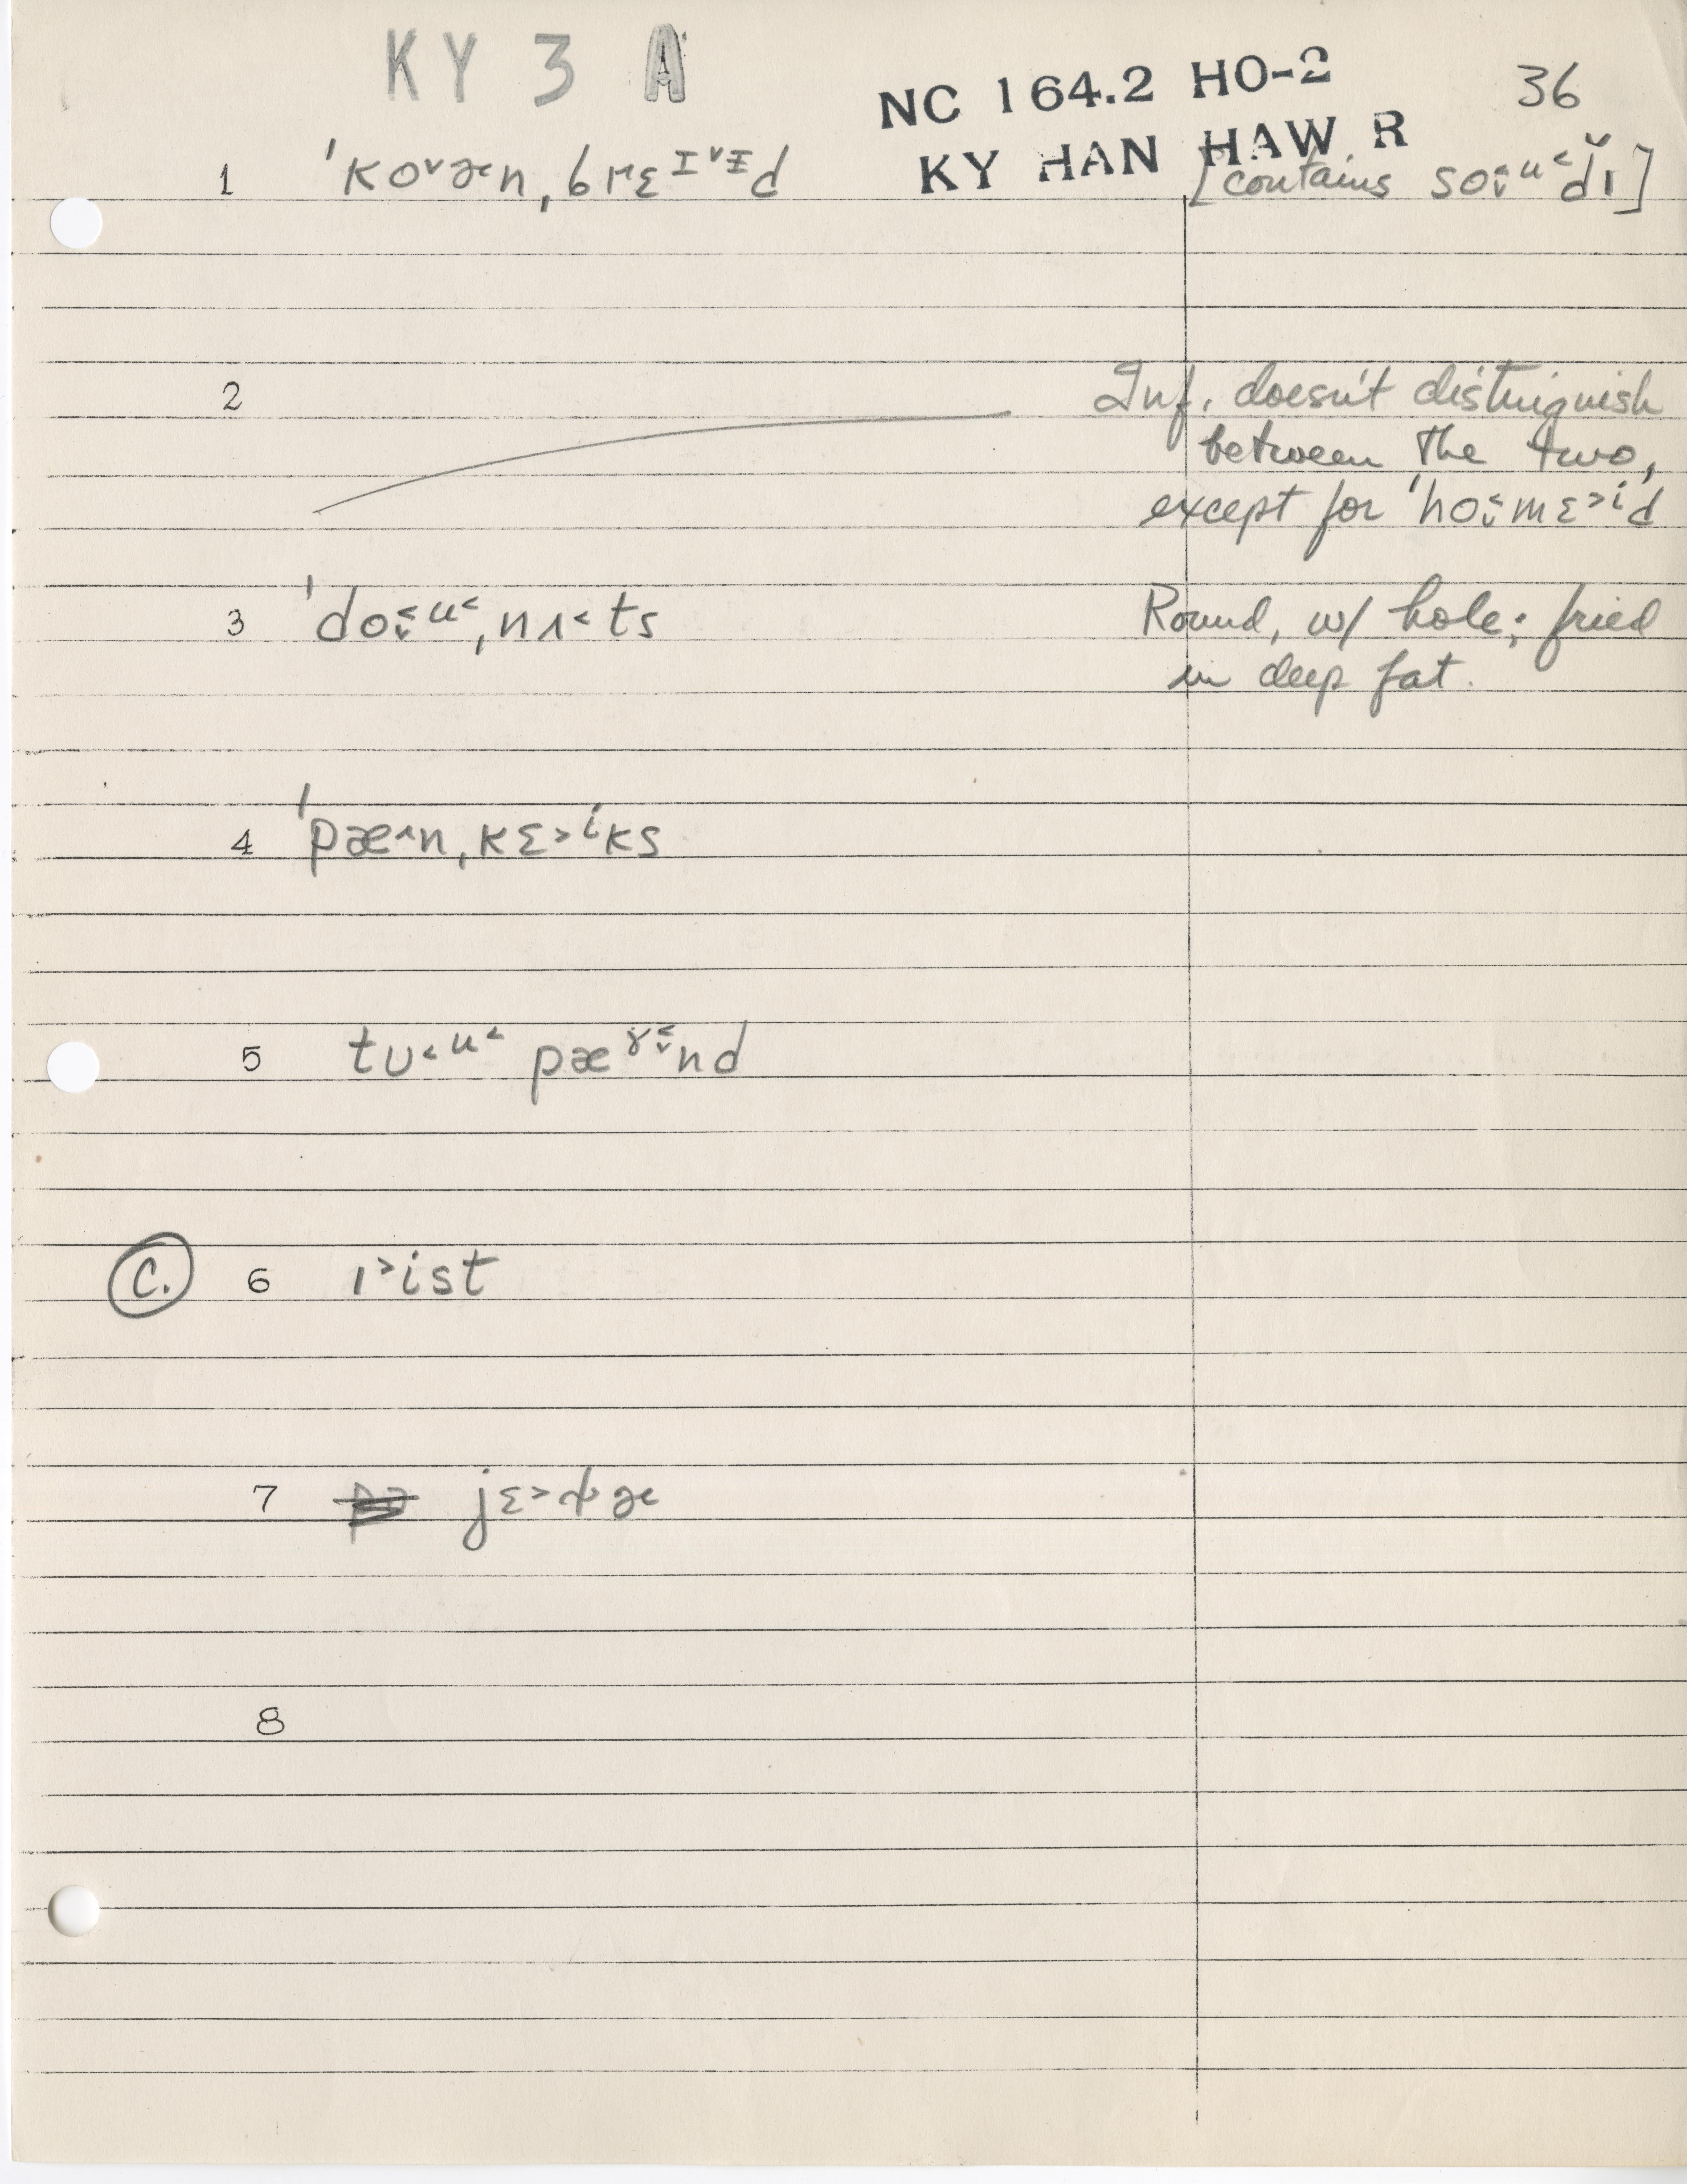 KY 3 A
NC 164.2 HO-2
36
KY HAN HAW R
1 ˈkoᵛɚn ˌbrɛɪᵛᵻd [contains soˑᵘ˂d̆ɪ]
2 Inf. doesn't distinguish
between the two,
except for ˈhoˑmɛ˃ⁱd
3 ˈdoˑᵘ˂ˌnʌ˂ts Round, w/ hole; fried
in deep fat.
4 ˈpæ^nˌkɛ˃ⁱks
5 tʊ˂ᵘ˂ pæᵞnd
C. 6 ɪ˃ist
7
8